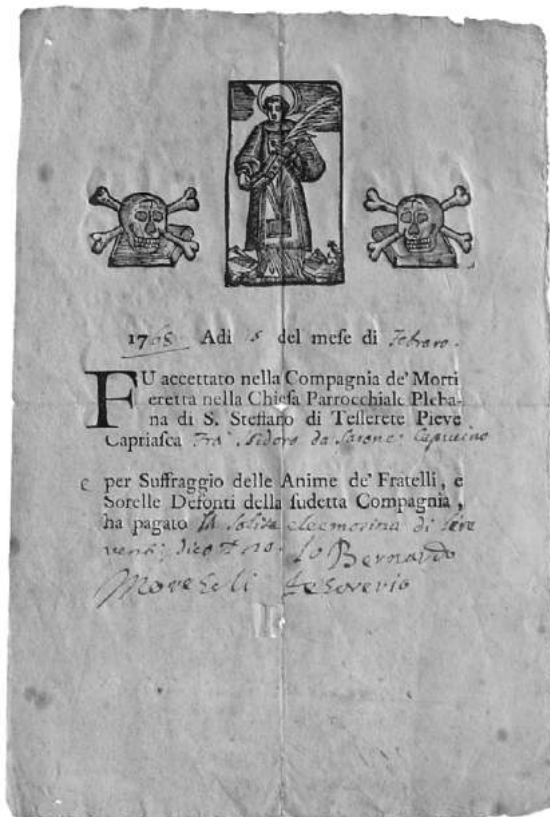 1768 Adi 15 del mese di Febraro.
FU accettato nella Compagnia de' Morti
eretta nella Chiesa Parrocchiale Pleba-
na di S. Steffano di Tesserete Pieve
Capriasca Fra Isidoro da Capucino
e per Suffraggio delle Anime de' Fratelli, e
Sorelle Defonti della sudetta Compagnia,
ha pagato la solita eleemosina di lire
venti, dico Io Bernardo
Moreseli Tesoverio